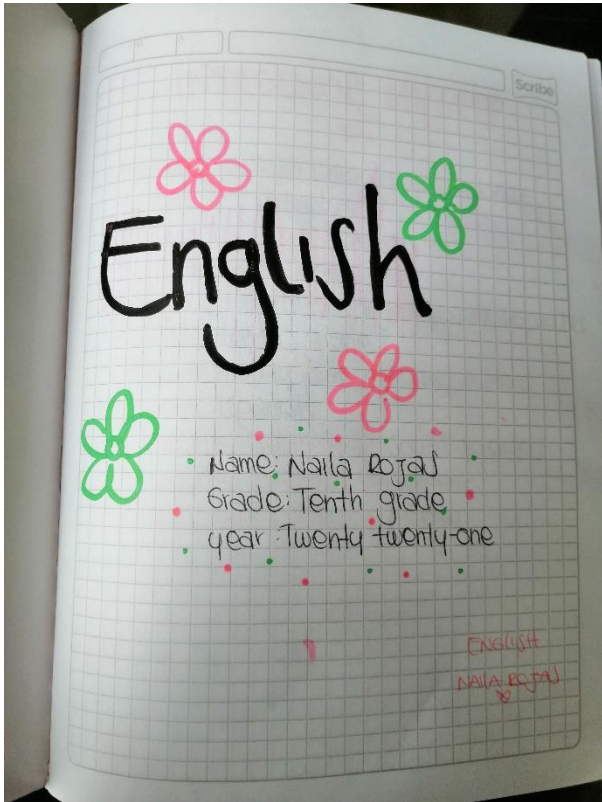 Scribe
English
Name: Naila Rojas
Grade: Tenth grade
year: Twenty twenty-one
ENGLISH
NAILA ROJAS